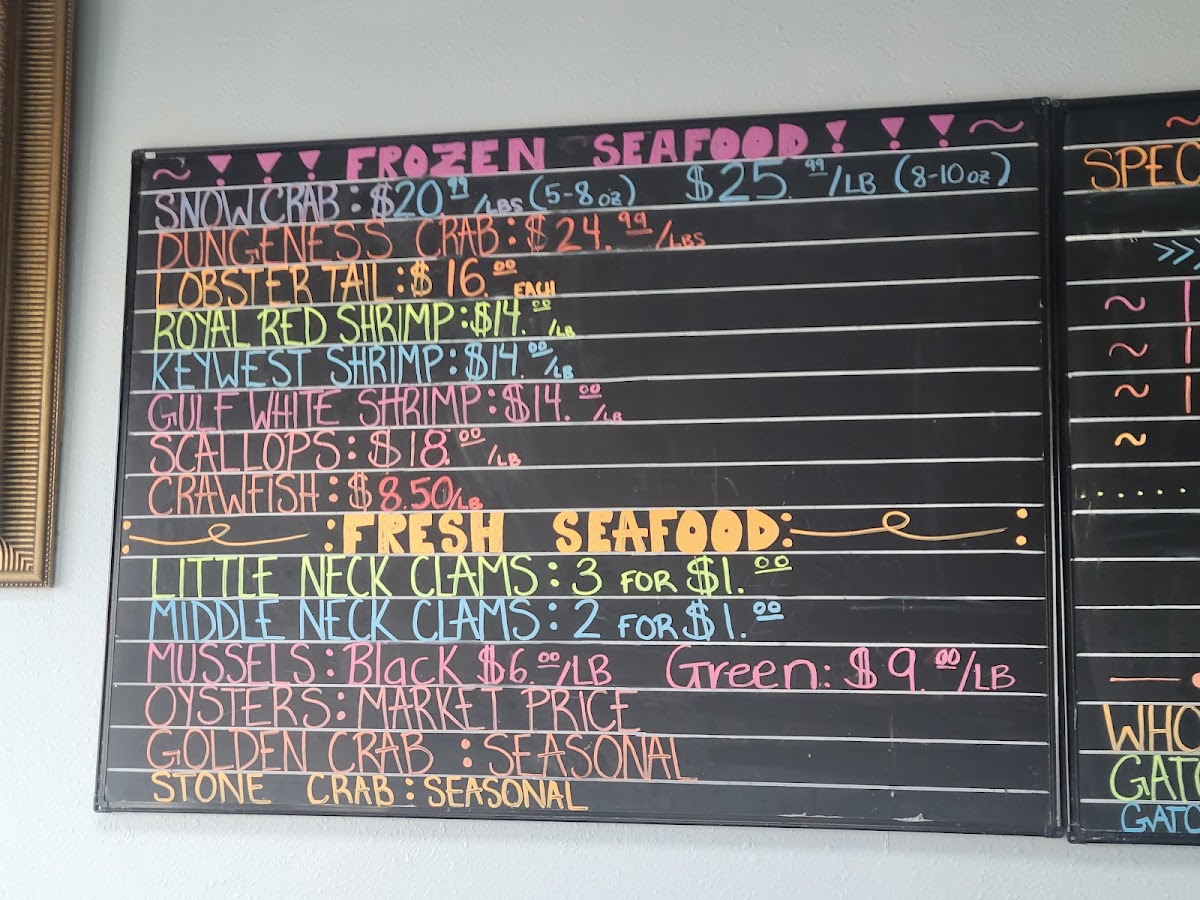 ~ ! ! ! FROZEN SEAFOOD ! ! ! ~
SNOW CRAB: $20.99/LBS (5-8oz) $25.99/LB (8-10oz)
DUNGENESS CRAB: $24.99/LBS
LOBSTER TAIL: $16.00 EACH
ROYAL RED SHRIMP: $14.00/LB
KEYWEST SHRIMP: $14.00/LB
GULF WHITE SHRIMP: $14.00/LB
SCALLOPS: $18.00/LB
CRAWFISH: $8.50/LB
:FRESH SEAFOOD:
LITTLE NECK CLAMS: 3 FOR $1.00
MIDDLE NECK CLAMS: 2 FOR $1.00
MUSSELS: Black $6.00/LB Green: $9.00/LB
OYSTERS: MARKET PRICE
GOLDEN CRAB : SEASONAL
STONE CRAB: SEASONAL
SPEC
>>>
WHO
GATO
GATO